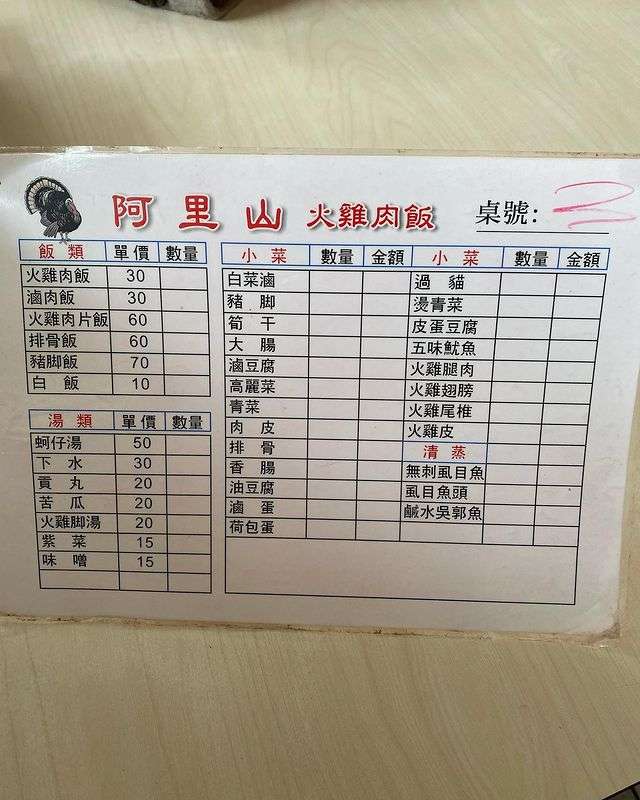 阿里山 火雞肉飯 桌號:
飯類 單價 數量
火雞肉飯 30
滷肉飯 30
火雞肉片飯 60
排骨飯 60
豬腳飯 70
白飯 10
湯類 單價 數量
蚵仔湯 50
下水 30
貢丸 20
苦瓜 20
火雞脚湯 20
紫菜 15
味噌 15
小菜 數量 金額
白菜滷
豬脚
筍干
大腸
滷豆腐
高麗菜
青菜
肉皮
排骨
香腸
油豆腐
滷蛋
荷包蛋
小菜 數量 金額
過貓
燙青菜
皮蛋豆腐
五味魷魚
火雞腿肉
火雞翅膀
火雞尾椎
火雞皮
清蒸
無刺虱目魚
虱目魚頭
鹹水吳郭魚